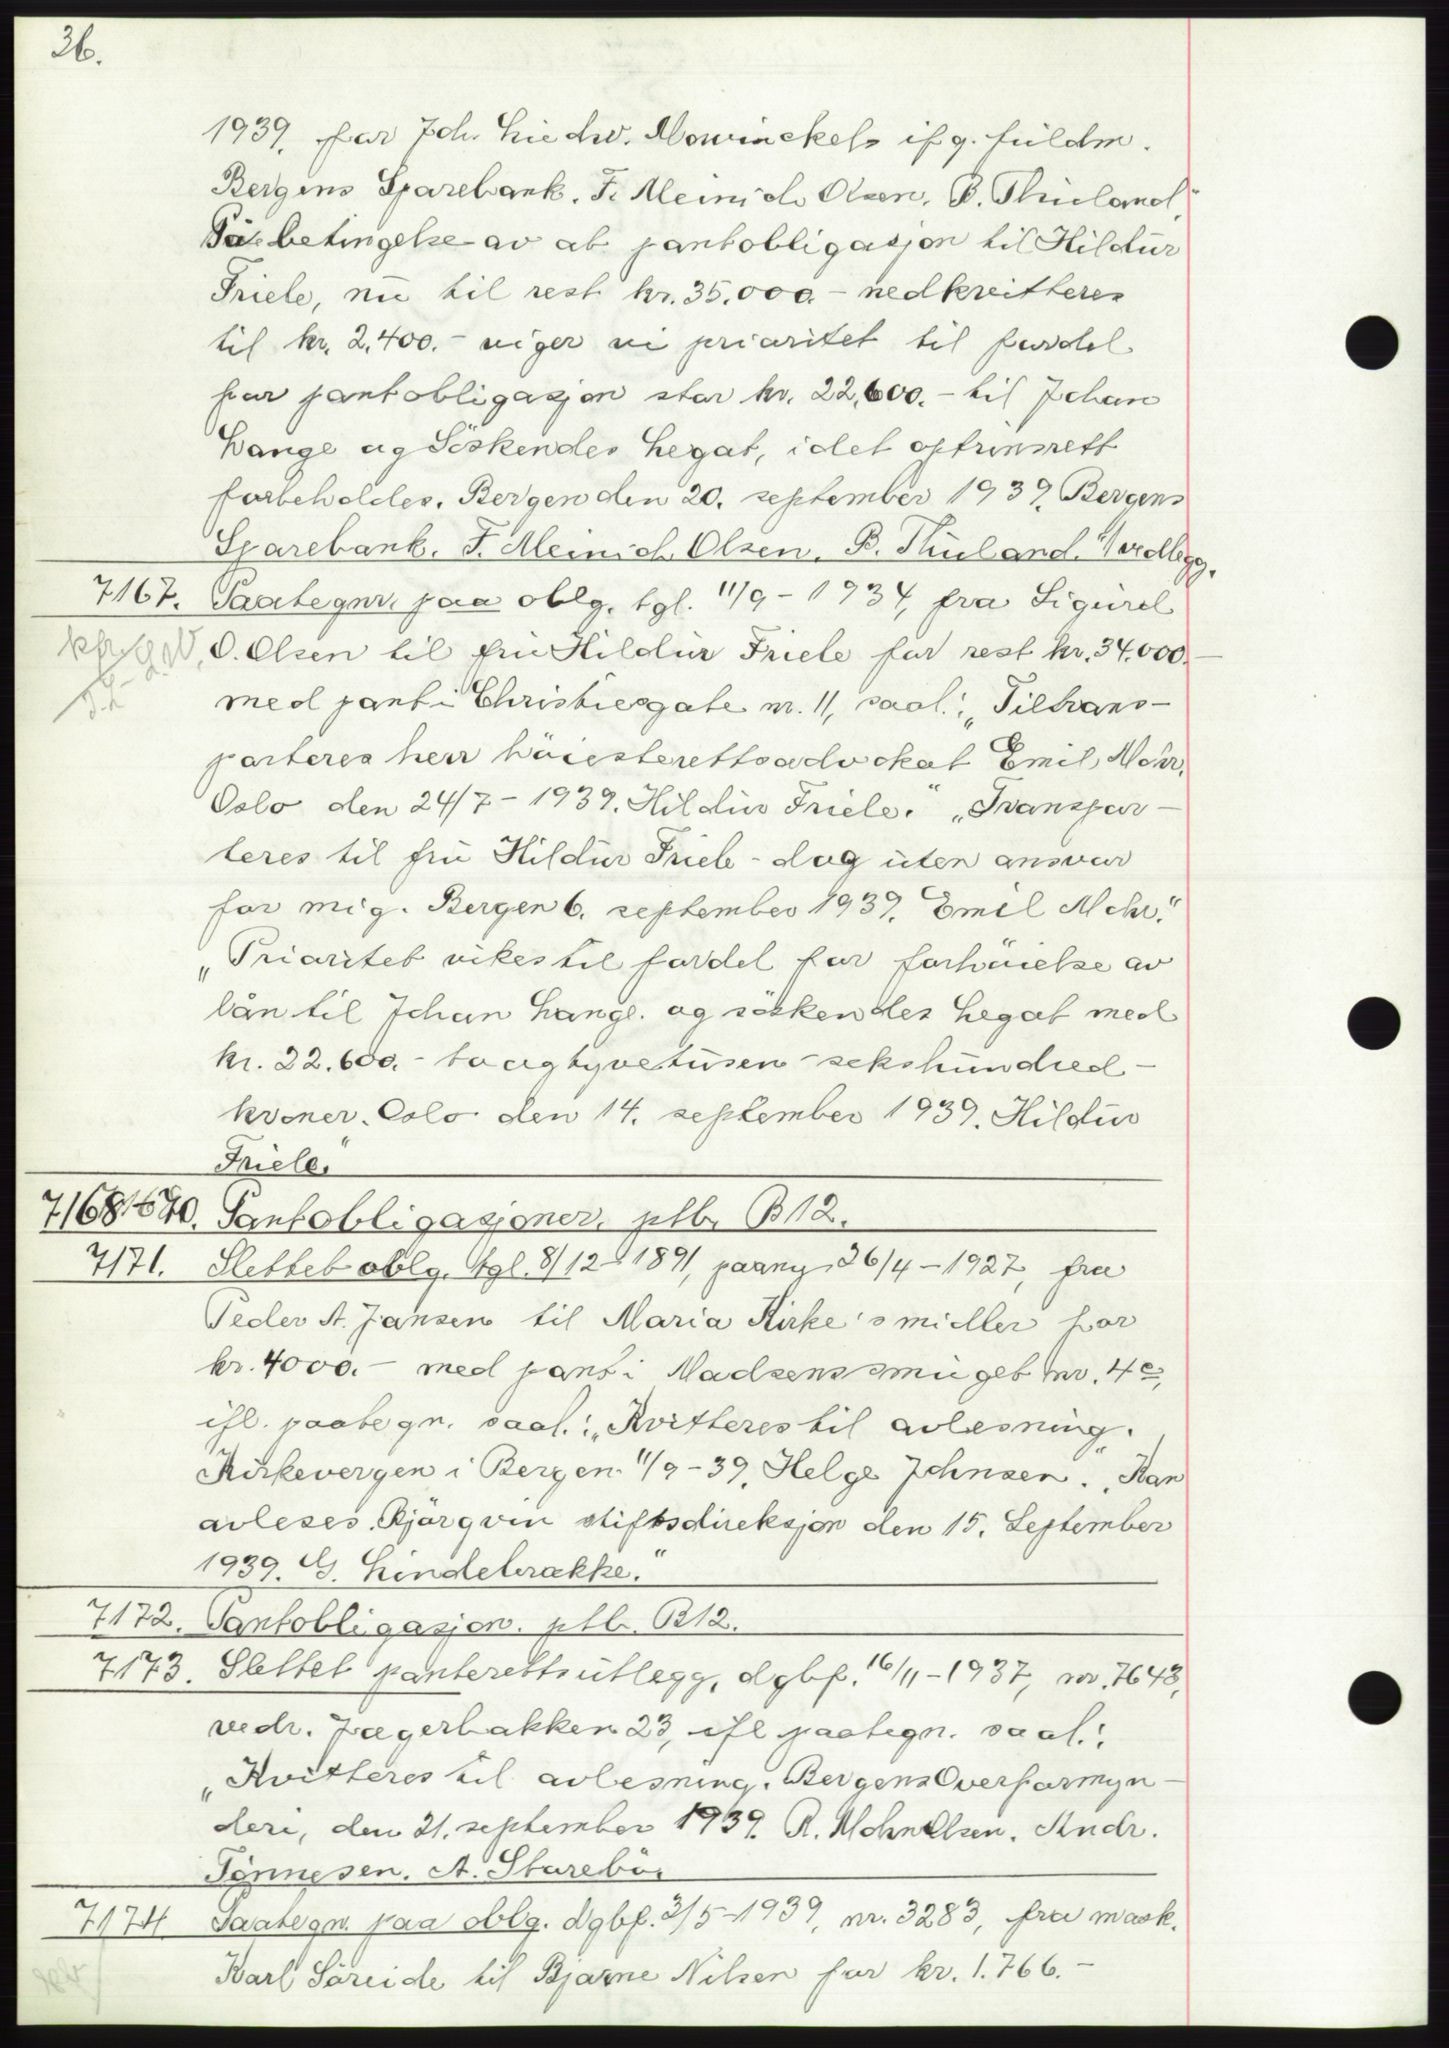 36.
1939. for Joh. Liedw. Mowinckels ifg. fuldm.
Bergens Sparebank. F. Meinich Olsen. B. Thuland."
På betingelse av at pantobligasjon til Hildur
Friele, nu til rest kr. 35.000.- nedkvitteres
til kr. 2.400.- viger vi prioritet til fordel
for pantobligasjon stor kr. 22.600.- til Johan
Lange og Söskendes Legat, idet optrinsrett
forbeholdes. Bergen den 20. september 1939. Bergens
Sparebank. F. Meinich Olsen. B. Thuland."
7167. Paategn. paa oblg. tgl. 11/9-1934, fra Sigurd
O. Olsen til fru Hildur Friele for rest kr. 34.000.-
med pant i Christiesgate nr. 11, saal.: „Tiltrans-
porteres herr höiesterettsadvokat Emil Mohr.
Oslo den 24/7-1939. Hildur Friele." „Transpor-
teres til fru Hildur Friele - dog uten ansvar
for mig. Bergen 6. september 1939. Emil Mohr."
„Prioritet vikes til fordel for forhöielse av
lån til Johan Lange. og söskendes Legat med
kr. 22.600.- toogtyvetusen-sekshundred-
kroner. Oslo den 14. september 1939. Hildur
Friele."
7168 - 70. Pantobligasjoner. ptb. B12.
7171. Slettet oblg. tgl. 8/12-1891, paany 26/4-1927, fra
Peder A. Jansen til Maria Kirke's midler for
kr. 4000.- med pant i Madsenssmuget nr. 4c,
ifl. paategn. saal.: „Kvitteres til avlesning.
Kirkevergen i Bergen. 11/9-39. Helge Johnsen." „Kan
avleses. Björgvin stiftsdireksjon den 15. September
1939. G. Lindebrække."
7172. Pantobligasjon. ptb. B12.
7173. Slettet panterettsutlegg, dgbf. 16/11-1937, nr. 7643,
vedr. Jægerbakken 23, ifl paategn. saal.:
„Kvitteres til avlesning. Bergens Overformyn-
deri, den 21. september 1939. R. Mohn Olsen. Andr.
Tönnesen. A. Starebö.
7174 Paategn. paa oblg. dgbf. 3/5-1939, nr. 3283, fra mask.
Karl Söreide til Bjarne Nilsen for kr. 1.766.-